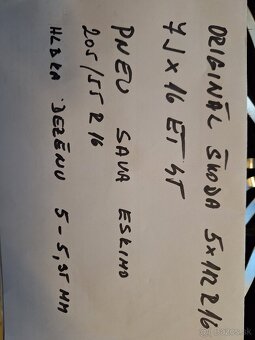 ORIGINÁL ŠKODA 5x112 R16
7J x 16 ET 45
PNEU SAVA ESKIMO
205/55 R16
HĹBKA DEZÉNU 5-5,95 MM